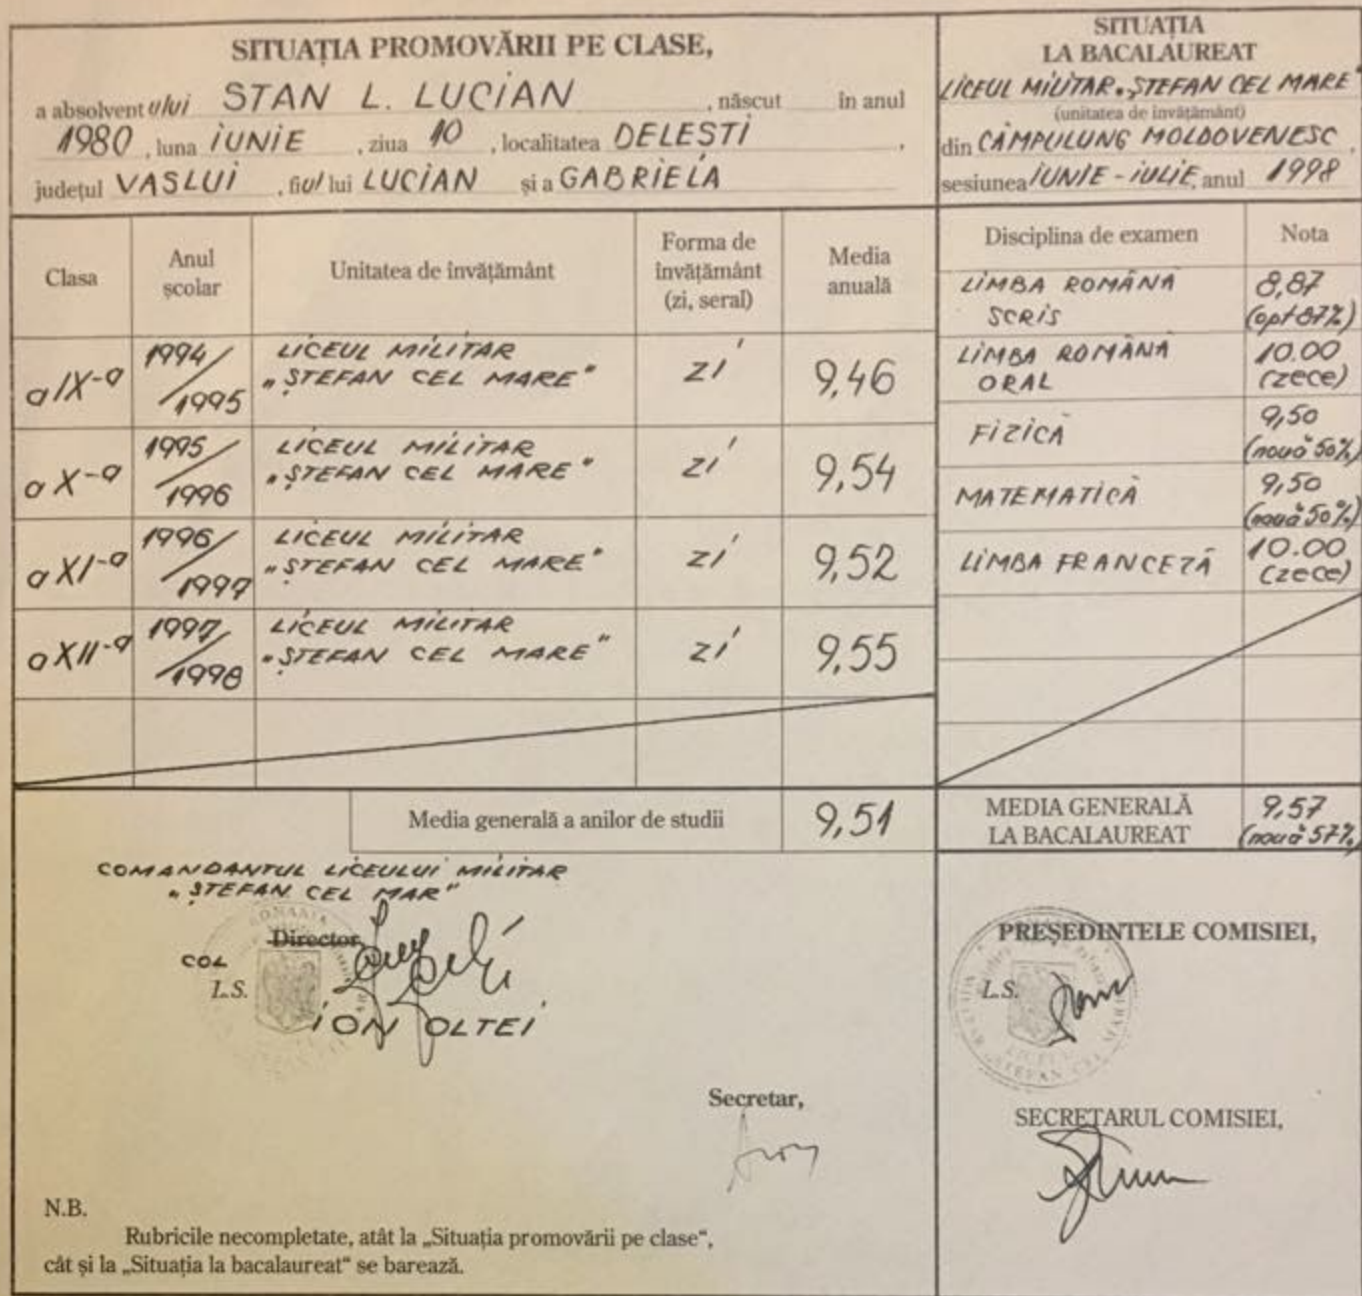 SITUAȚIA PROMOVĂRII PE CLASE,
a absolventului STAN L. LUCIAN, născut în anul
1980, luna IUNIE, ziua 10, localitatea DELEȘTI,
județul VASLUI, fiul lui LUCIAN și a GABRIELA
Clasa Anul școlar Unitatea de învățământ Forma de învățământ (zi, seral) Media anuală
a IX-a 1994/1995 LICEUL MILITAR „ȘTEFAN CEL MARE" ZI 9,46
a X-a 1995/1996 LICEUL MILITAR „ȘTEFAN CEL MARE" ZI 9,54
a XI-a 1996/1997 LICEUL MILITAR „ȘTEFAN CEL MARE" ZI 9,52
a XII-a 1997/1998 LICEUL MILITAR „ȘTEFAN CEL MARE" ZI 9,55
Media generală a anilor de studii 9,51
COMANDANTUL LICEULUI MILITAR
„ȘTEFAN CEL MAR"
Director
COL
L.S.
ION OLTEI
Secretar,
N.B.
Rubricile necompletate, atât la „Situația promovării pe clase“,
cât și la „Situația la bacalaureat“ se barează.
SITUAȚIA
LA BACALAUREAT
LICEUL MILITAR „ȘTEFAN CEL MARE"
(unitatea de învățământ)
din CÂMPULUNG MOLDOVENESC,
sesiunea IUNIE - IULIE, anul 1998
Disciplina de examen Nota
LIMBA ROMÂNĂ SCRIS 8,87 (opt 87%)
LIMBA ROMÂNĂ ORAL 10.00 (zece)
FIZICĂ 9,50 (nouă 50%)
MATEMATICĂ 9,50 (nouă 50%)
LIMBA FRANCEZĂ 10.00 (zece)
MEDIA GENERALĂ LA BACALAUREAT 9,57 (nouă 57%)
PREȘEDINTELE COMISIEI,
L.S.
SECRETARUL COMISIEI,